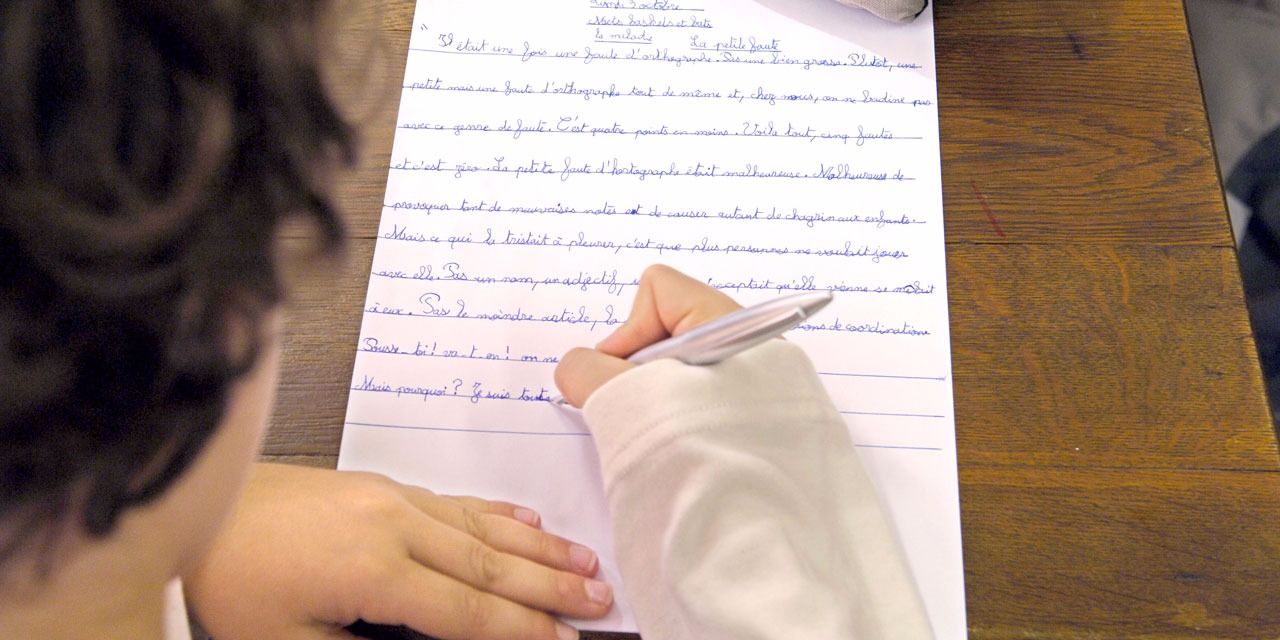 Lundi 3 octobre
Mots baskets et buts
la maladie La petite faute
" Il était une fois une faute d'orthographe. Pas une bien grosse. Plutôt, une
petite mais une faute d'orthographe tout de même et, chez nous, on ne badine pas
avec ce genre de faute. C'est quatre points en moins. Voila tout, cinq fautes
et c'est zéro. La petite faute d'hortographe était malheureuse. Malheureuse de
provoquer tant de mauvaises notes et de causer autant de chagrin aux enfants.
Mais ce qui la tristait à pleurer, c'est que plus personnes ne voulait jouer
avec elle. Pas un nom, un adjectif, acceptait qu'elle vienne se mêlait
à eux. Pas le moindre article, la ions de coordinations
Pousse-toi! va-t-en! on ne
Mais pourquoi? Je suis toute